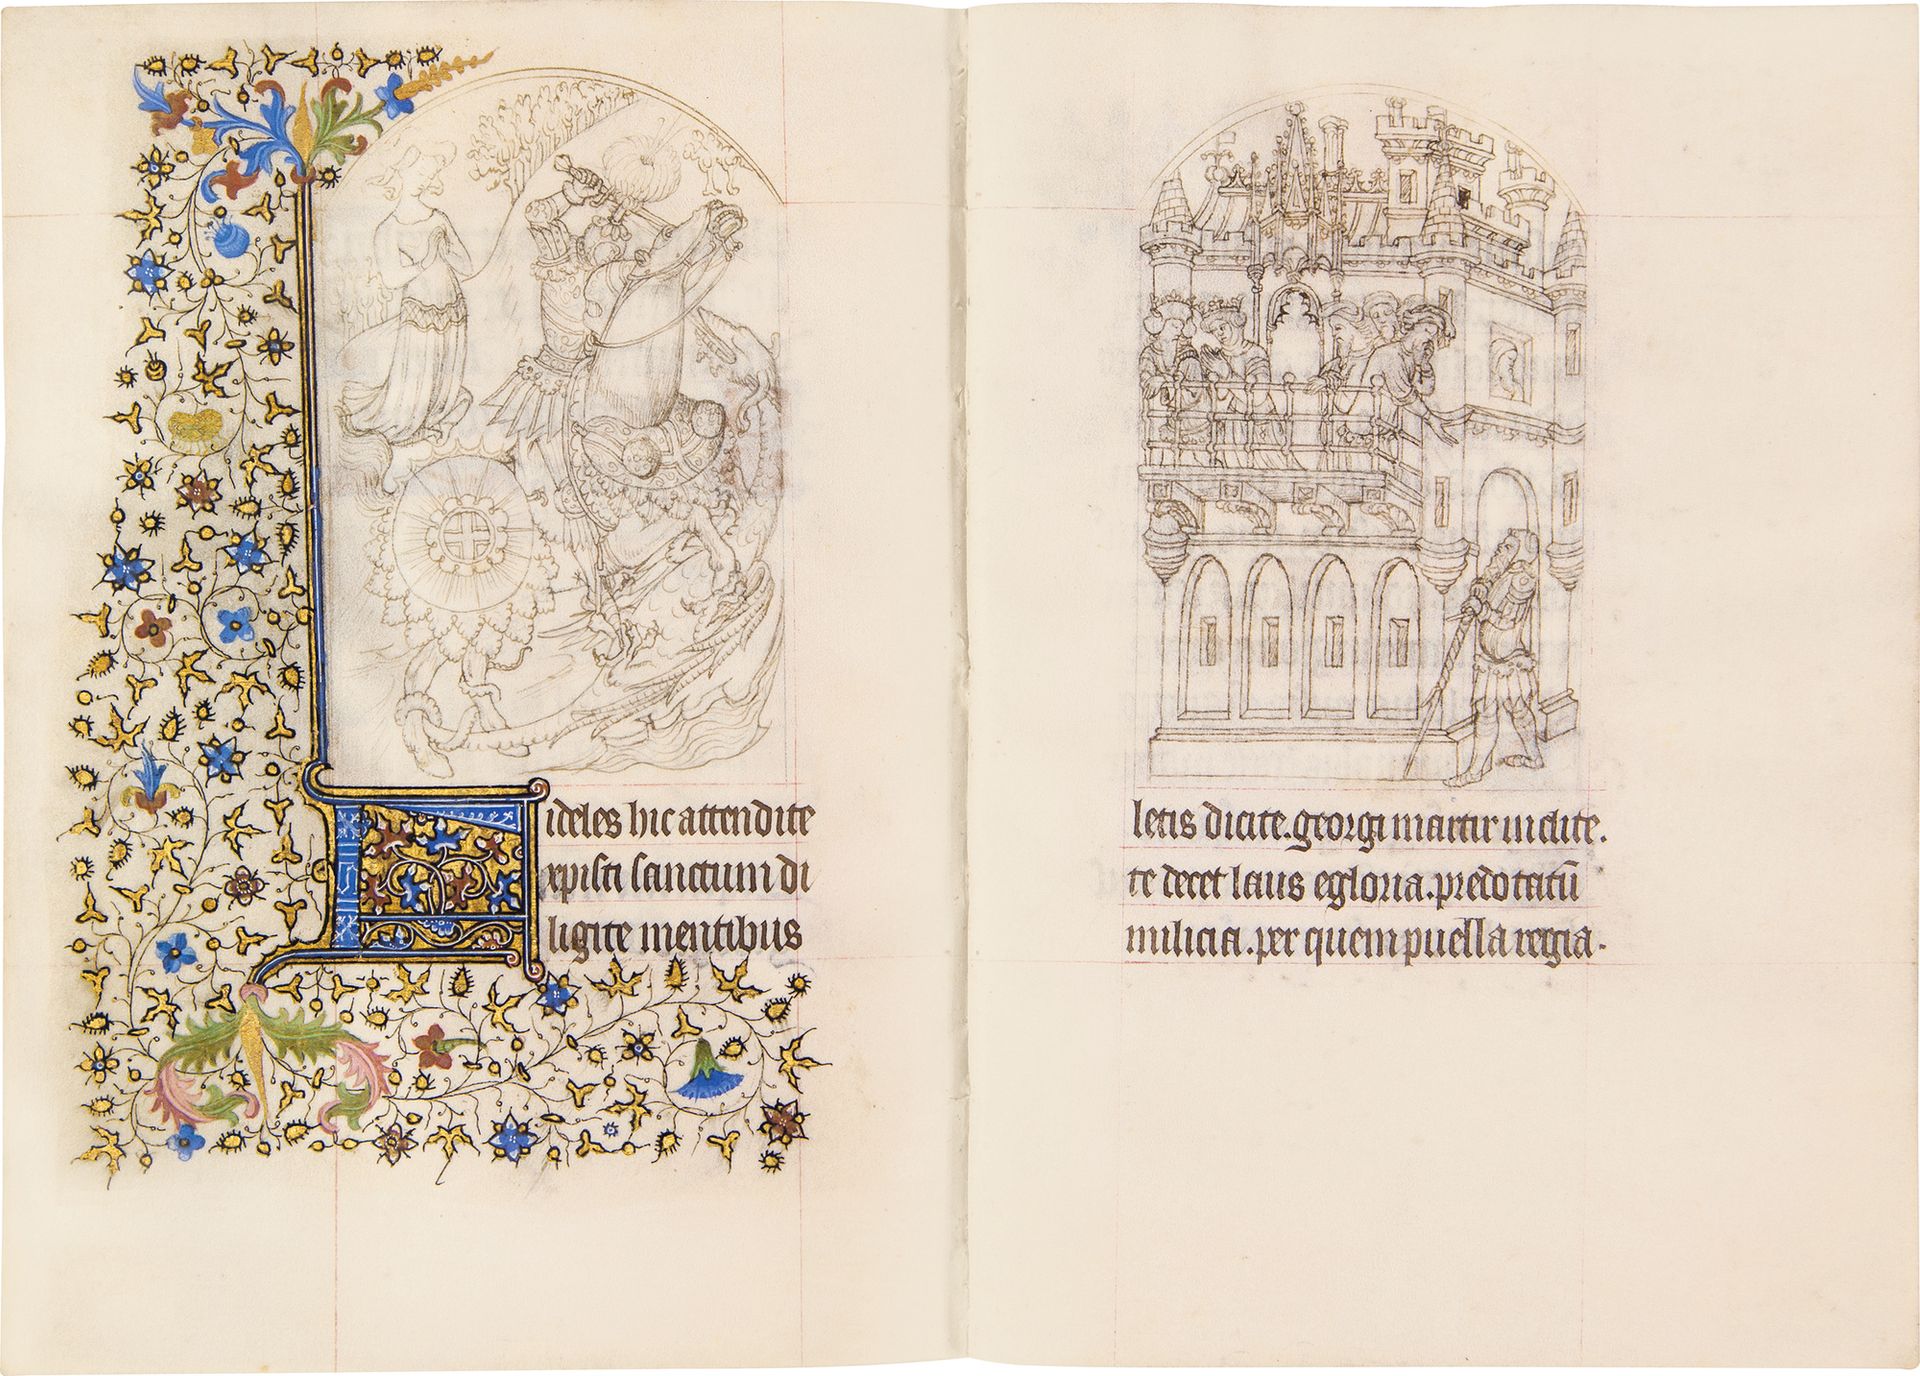 Fideles hic attendite
xpisti sanctum di
ligite mentibus
letis dicite. georgi martir inclite.
te decet laus egloria. predotatū
milicia. per quem puella regia.